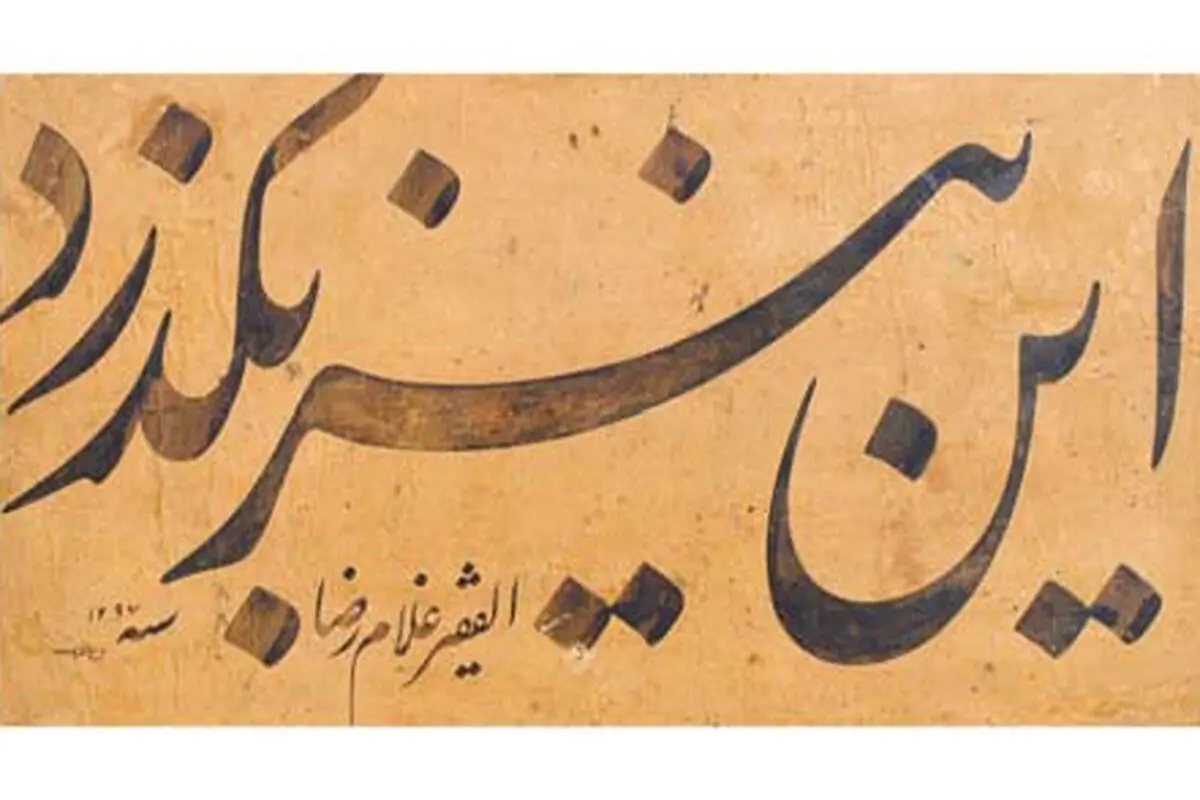 این نیز بگذرد
الفقیر غلامرضا
سنه ۱۲۹۷